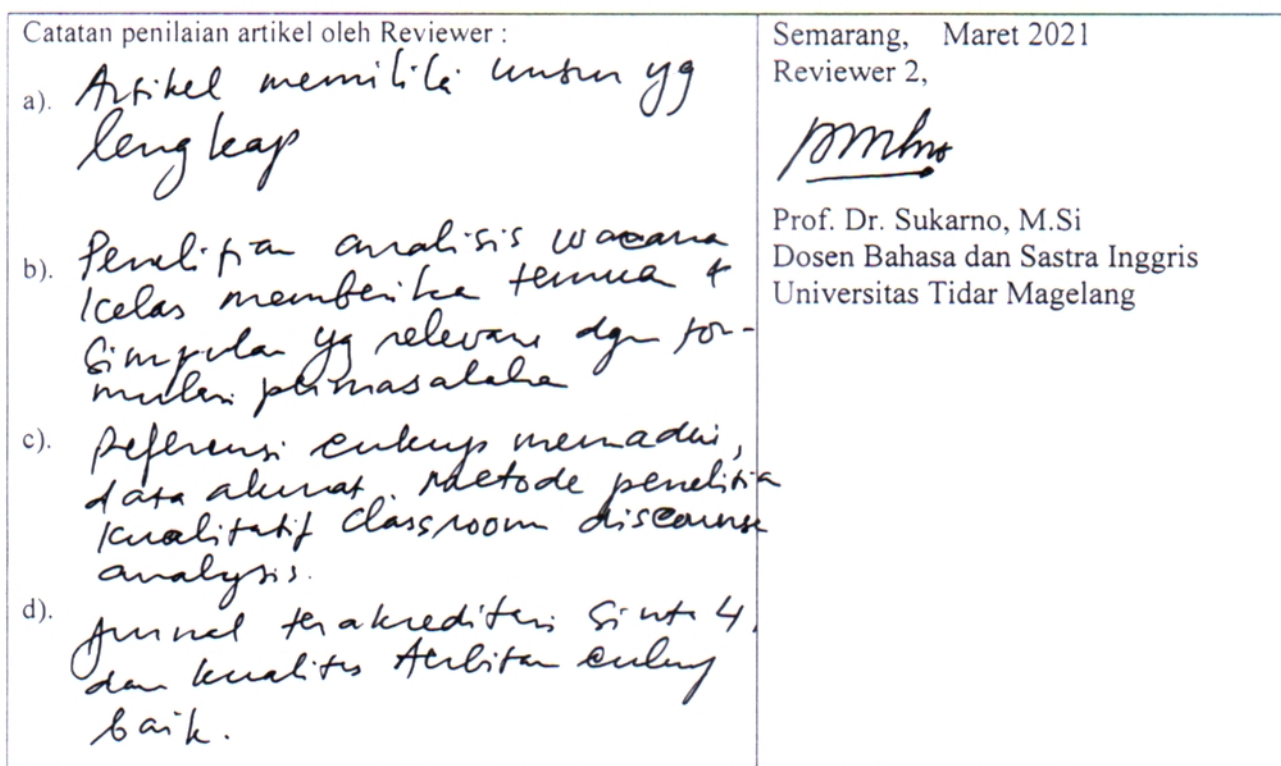 Catatan penilaian artikel oleh Reviewer :
a). Artikel memiliki unsur yg
lengkap
b). Penelitian analisis wacana
kelas memberika temua +
simpulan yg relevan dgn for-
mulasi permasalaha
c). Referensi cukup memadai,
data akurat. Metode penelitia
kualitatif classroom discourse
analysis.
d). Jurnal terakreditasi Sinta 4,
dan kualitas terbitan cukup
baik.
Semarang, Maret 2021
Reviewer 2,
Prof. Dr. Sukarno, M.Si
Dosen Bahasa dan Sastra Inggris
Universitas Tidar Magelang